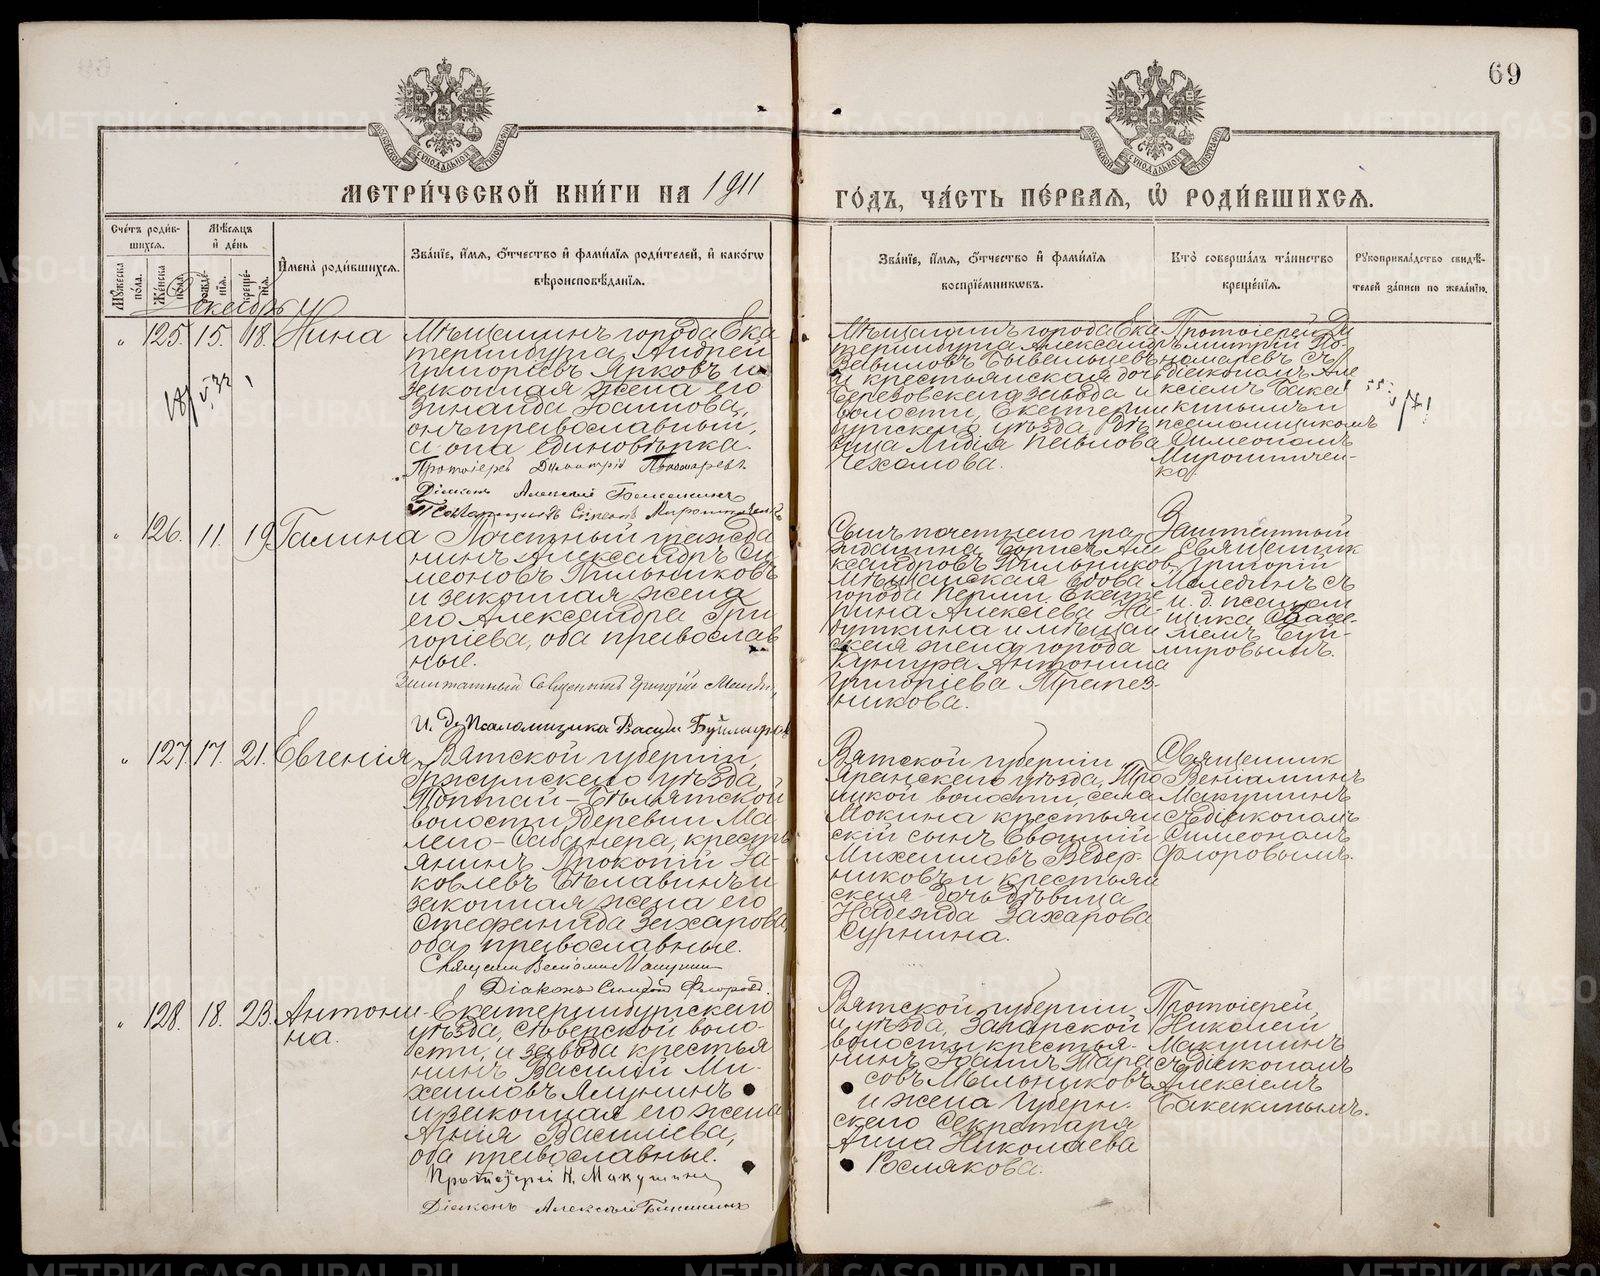 69
МЕТРИ́ЧЕСКОЙ КНИ́ГИ НА 1911
ГО́ДЪ, ЧА́СТЬ ПЕ́РВАЯ, Ѡ҆ РОДИ́ВШИХСѦ.
Сче́тъ роди́в-
шихсѧ.
Мꙋ́жеска по́ла.
Же́нска по́ла.
Мѣ́сѧцъ
и҆ де́нь
рожде́-
нїѧ.
креще́-
нїѧ.
И҆мена̀ роди́вшихсѧ.
Зва́нїе, и҆́мѧ, ѻ҆́тчество и҆ фами́лїѧ роди́телей, и҆ како́гѡ
вѣроисповѣ́данїѧ.
Зва́нїе, и҆́мѧ, ѻ҆́тчество и҆ фами́лїѧ
воспрїе́мниковъ.
Кто̀ соверша́лъ та́инство
креще́нїѧ.
Рꙋкоприкла́дство свидѣ́-
телей за́писи по жела́нїю.
Декабрь
„ 125. 15. 18. Нина
Мѣщанинъ города Ека
теринбурга Андрей
Григорьевъ Ярковъ и
законная жена его
Зинаида Іоаннова,
онъ православный,
а она единовѣрка.
Протоіерей Димитрій Пономаревъ
Діаконъ Алексій Бакакинъ
Псаломщикъ Симеонъ Мирошниченко
Мѣщанинъ города Ека
теринбурга Александръ
Вавиловъ Бывальцевъ
и крестьянская дочь
Березовскаго завода и
волости, Екатерин
бургскаго уѣзда, дѣ
вица Лидія Павлова
Чехомова.
Протоіерей Ди
митрій По-
номаревъ съ
діакономъ Але
ксіемъ Бака
кинымъ и
псаломщикомъ
Симеономъ
Мирошничен-
ко.
„ 126. 11. 19. Галина
Почетный гражда
нинъ Александръ Си
меоновъ Пильниковъ
и законная жена
его Александра Гри
горіева, оба православ
ные.
Заштатный Священникъ Григорій
И. д. Псаломщика Василій
Сынъ почетнаго гра
жданина Борисъ Але
ксандровъ Пильниковъ,
мѣщанская вдова
города Перми, Екате
рина Алексіева На-
буткина и мѣщан
ская жена города
Кунгура Антонина
Григоріева Трапез-
никова.
Заштатный
Священник
Григорій
съ
и. д. псалом
щика Васи-
лемъ Буй-
мировымъ.
„ 127. 17. 21. Евгенія
Вятской губерніи,
Уржумскаго уѣзда,
волости, деревни Ма
лаго-Сабанера, кресть
янинъ Прокопій Іа-
ковлевъ Бѣлавинъ и
законная жена его
Стефанида Захарова,
оба православные.
Священникъ Веніаминъ Макушинъ
Діаконъ Симеонъ Флоровъ.
Вятской губерніи
Яранскаго уѣзда, Тро
ицкой волости, села
Мокина крестьян
скій сынъ Евфимій
Михаиловъ Ведер-
никовъ и крестьян
ская дочь дѣвица
Надежда Захарова
Сурнина.
Священник
Веніаминъ
Макушинъ
съ діакономъ
Симеономъ
Флоровымъ.
„ 128. 18. 23. Антони
на.
Екатеринбургскаго
уѣзда, Сѣверской воло-
сти, и завода крестья
нинъ Василій Ми-
хаиловъ Ялунинъ
и законная его жена
Агнія Василіева,
оба православные.
Протоіерей Н. Макушинъ
Діаконъ Алексій Бакакинъ
Вятской губерніи
и уѣзда, Загарской
волости крестья-
нинъ Іоаннъ Тара
совъ Мыльниковъ
и жена Губерн-
скаго Секретаря
Анна Николаева
Рослякова.
Протоіерей
Николай
Макушинъ
съ діакономъ
Алексіемъ
Бакакинымъ.
METRIKI.GASO-URAL.RU